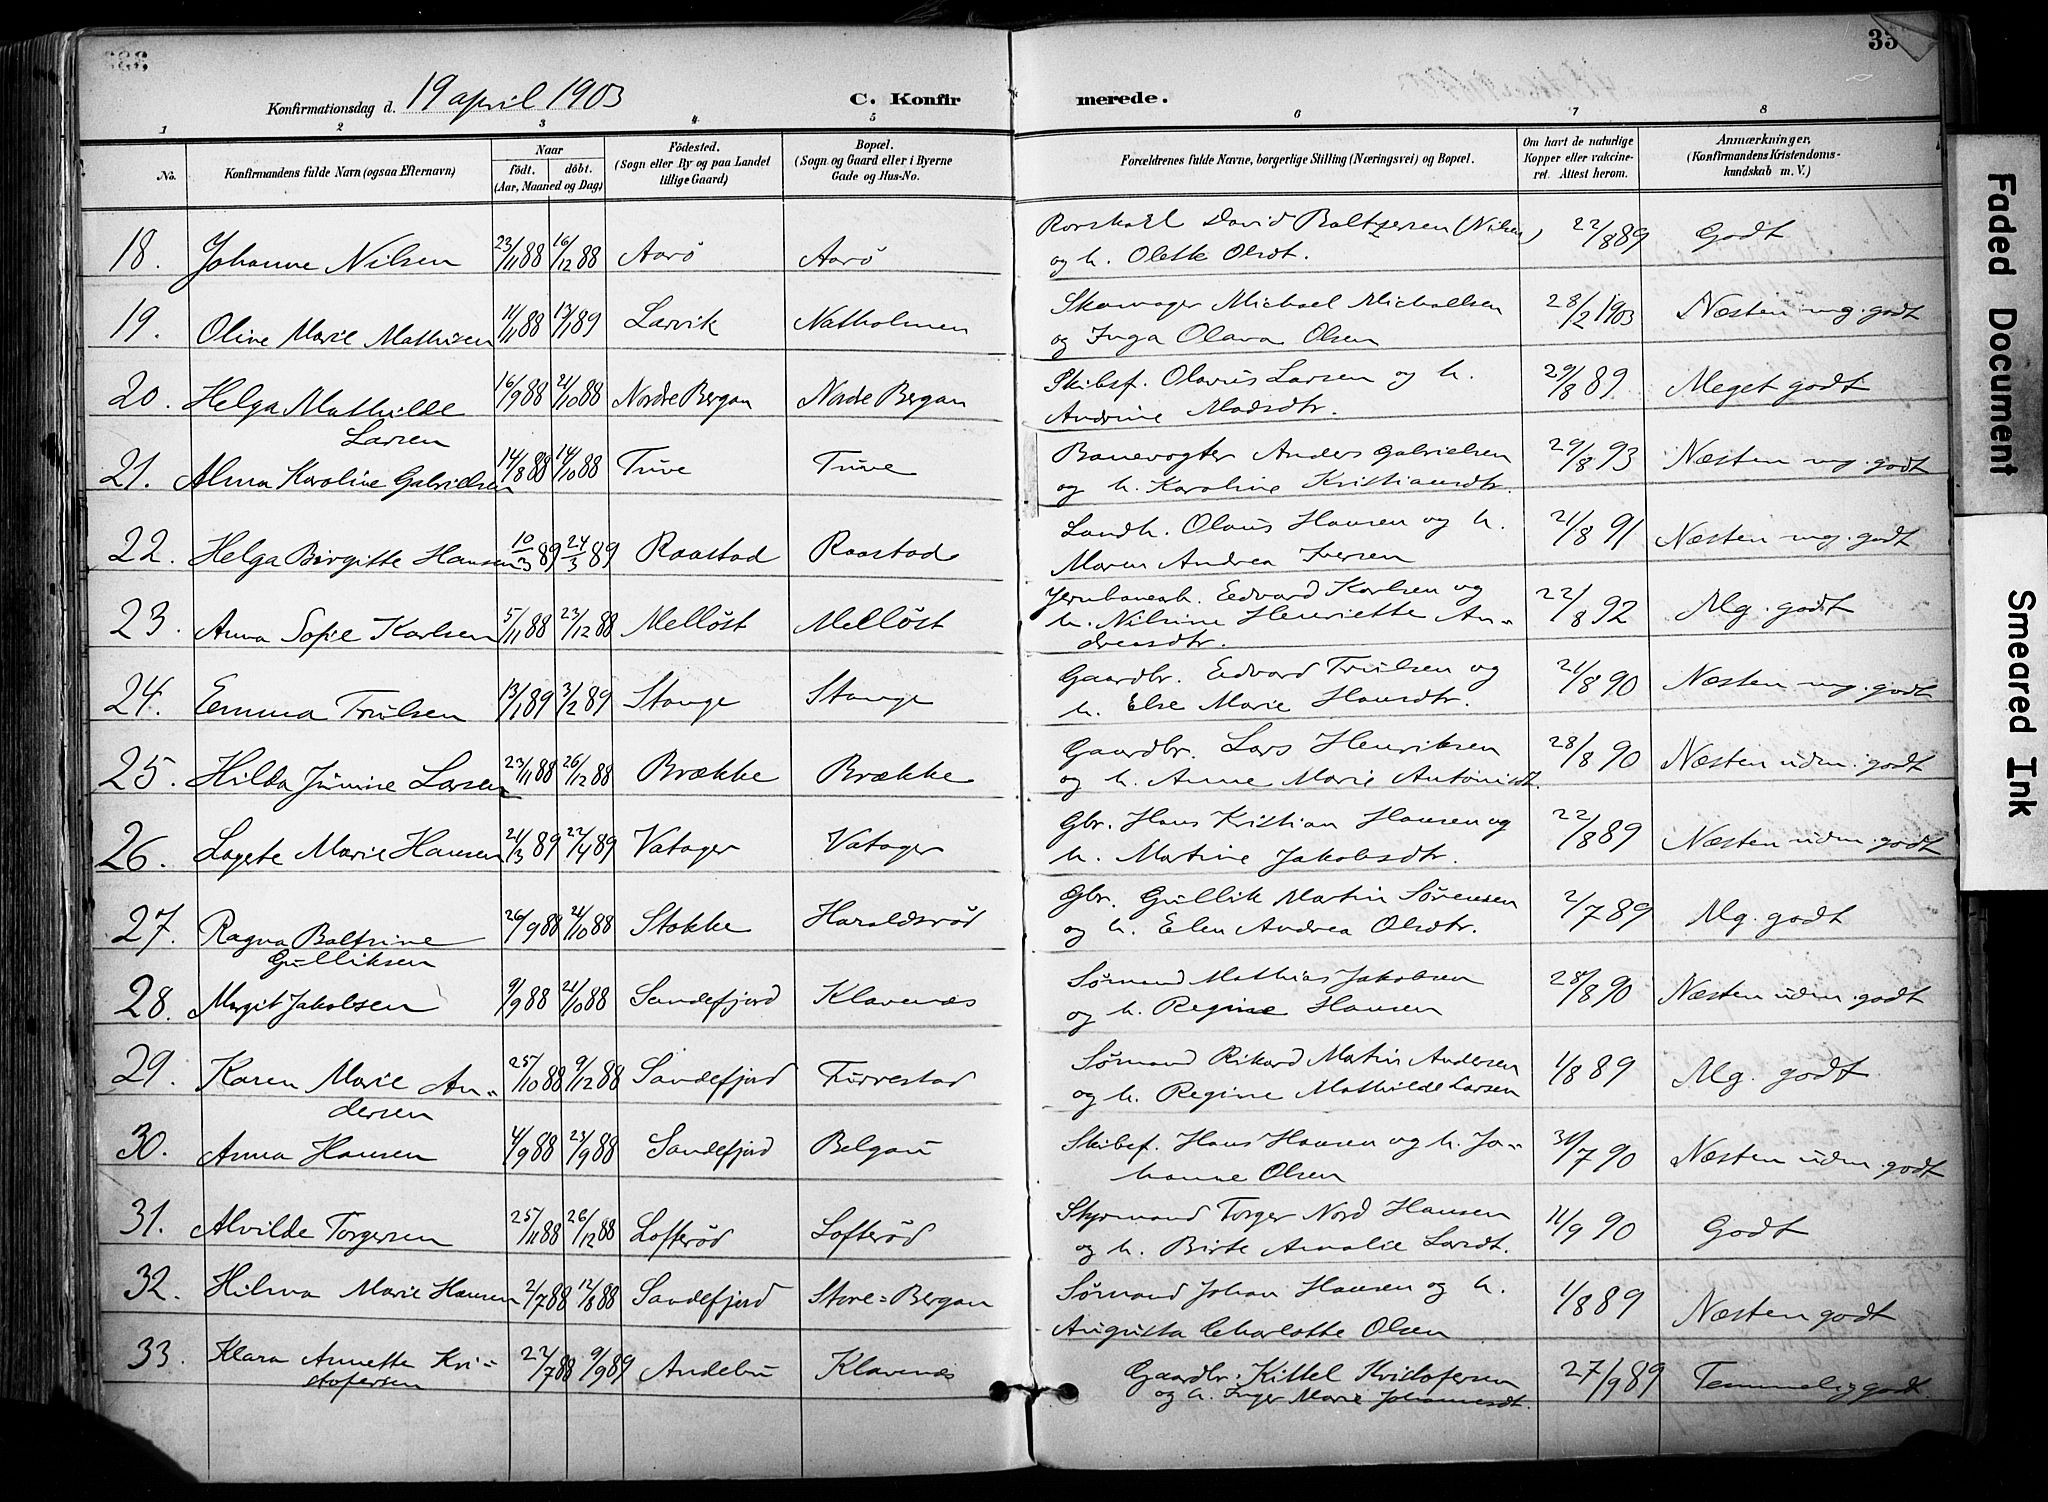 333
35
Konfirmationsdag d. 19 april 1903
C. Konfirmerede.
1 2 3 4 5 6 7 8
No.
Konfirmandens fulde Navn (ogsaa Efternavn)
Naar
født. døbt.
(Aar, Maaned og Dag)
Fødested.
(Sogn eller By og paa Landet
tillige Gaard)
Bopæl.
(Sogn og Gaard eller i Byerne
Gade og Hus-No.
Forældrenes fulde Navne, borgerlige Stilling (Næringsvei) og Bopæl.
Om havt de naturlige
Kopper eller vakcine-
ret. Attest herom.
Anmærkninger,
(Konfirmandens Kristendoms-
kundskab m. V.)
18. Johanne Nilsen 23/11 88 16/12 88 Aarø Aarø David Baltzersen (Nilsen) 22/8 89 Godt
og h. Olette Olsdt.
19. Olive Marie Mathisen 11/11 88 13/1 89 Larvik Natholmen Skomager Michael Michaelsen 28/2 1903 Næsten mg. godt
og Inga Olava Olsen
20. Helga Mathilde 16/9 88 21/10 88 Nordre Bergan Nordre Bergan Skibsf. Olavus Larsen og h. 29/8 89. Meget godt
Larsen Andrine Madsdtr.
21. Alma Karoline Gabrielsen 14/8 88 14/10 88 Tuve Tuve Banevogter Anders Gabrielsen 29/8 93 Næsten mg. godt
og h. Karoline Kristiansdtr.
22. Helga Birgitte Hansen 10/3 89 24/3 89 Raastad Raastad Landh. Olaus Hansen og h. 21/8 91 Næsten mg. godt
Maren Andrea Iversen
23. Anna Sofie Karlsen 5/11 88 23/12 88 Melløst Melløst Jernbanearb. Edvard Karlsen og 22/8 92 Mg. godt
h. Nilsine Henriette An-
dreasdtr.
24. Emma Trulsen 13/1 89 3/2 89 Stange Stange Gaardbr. Edvard Trulsen og 21/8 90 Næsten mg. godt
h. Else Marie Hansdtr.
25. Hilda Jumine Larsen 23/11 88 26/12 88 Brække Brække Gaardbr. Lars Henriksen 28/8 90 Næsten udm. godt
og h. Anne Marie Antonisdt.
26. Lagete Marie Hansen 21/3 89 22/4 89 Vatager Vatager Gbr. Hans Kristian Hansen og 22/8 89 Næsten udm. godt
h. Martine Jakobsdtr.
27. Ragna Baltsine 26/9 88 21/10 88 Stokke Haraldsrød Gbr. Gullik Martin Sørensen 2/7 89 Mg. godt
Gulliksen og h. Elen Andrea Olsdtr.
28. Margit Jakobsen 9/9 88 21/10 88 Sandefjord Klavenæs Sømand Mathias Jakobsen 28/8 90 Næsten udm. godt
og h. Regine Hansen
29. Karen Marie An- 25/10 88 9/12 88 Sandefjord Furrestad Sømand Rikard Matin Andersen 1/8 89 Mg. godt
dersen og h. Regine Mathilde Larsen
30. Anna Hansen 4/9 88 23/9 88 Sandefjord Belgau Skibsf. Hans Hansen og h. Jo- 31/7 90 Næsten udm. godt
hanne Olsen
31. Alvilde Torgersen 25/11 88 26/12 88 Lofterød Lofterød Styrmand Torger Nord Hansen 11/9 90 Godt
og h. Birte Amalie Larsdt.
32. Hilma Marie Hansen 2/7 88 12/8 88 Sandefjord Store=Bergan Sømand Johan Hansen og h. 1/8 89 Næsten godt
Augusta Charlotte Olsen
33. Klara Annette Kri- 22/7 88 9/9 89 Andebu Klavenæs Gaardbr. Kittel Kristofersen 27/9 89 Temmelig godt.
stofersen og h. Inger Marie Johannesdt.
Faded Document
Smeared Ink